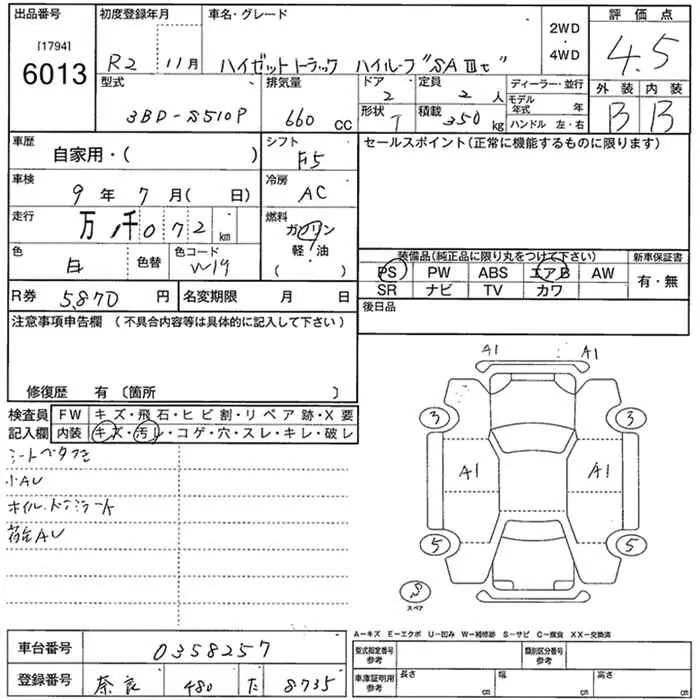 出品番号 初度登録年月 車名・グレード 評価点
[1794]
6013
R2 11月 ハイゼットトラック ハイルーフ "SAⅢt" 2WD・4WD 4.5
型式 排気量 ドア 定員 ディーラー・並行 外装 内装
3BD-S510P 660 CC 2 2人 モデル年式 年 B B
形状 T 積載 350 kg ハンドル 左・右
車歴 シフト セールスポイント(正常に機能するものに限ります)
自家用・( ) F5
車検 冷房
9年 7月( 日) AC
走行 燃料
万 千072 km ガソリン
軽・油
( )
色 色替 色コード
白 W19
装備品(純正品に限り丸をつけて下さい) 新車保証書
PS PW ABS エアB AW 有・無
SR ナビ TV カワ
R券 5,870 円 名変期限 月 日
後日品
注意事項申告欄 (不具合内容等は具体的に記入して下さい)
修復歴 有 〔箇所 〕
検査員記入欄 FW キズ・飛石・ヒビ割・リペア跡・X要
内装 キズ・汚レ・コゲ・穴・スレ・キレ・破レ
シートベタつき
小AU
荷台AU
A1 A1
3 3
A1 A1
5 5
S
スペア
A−キズ E−エクボ U−凹み W−補修跡 S−サビ C−腐食 XX−交換済
車台番号 0358257
登録番号 奈良 480 た 8735
型式指定番号 参考 類別区分番号 参考
車庫証明用 参考 長さ cm 幅 cm 高さ cm